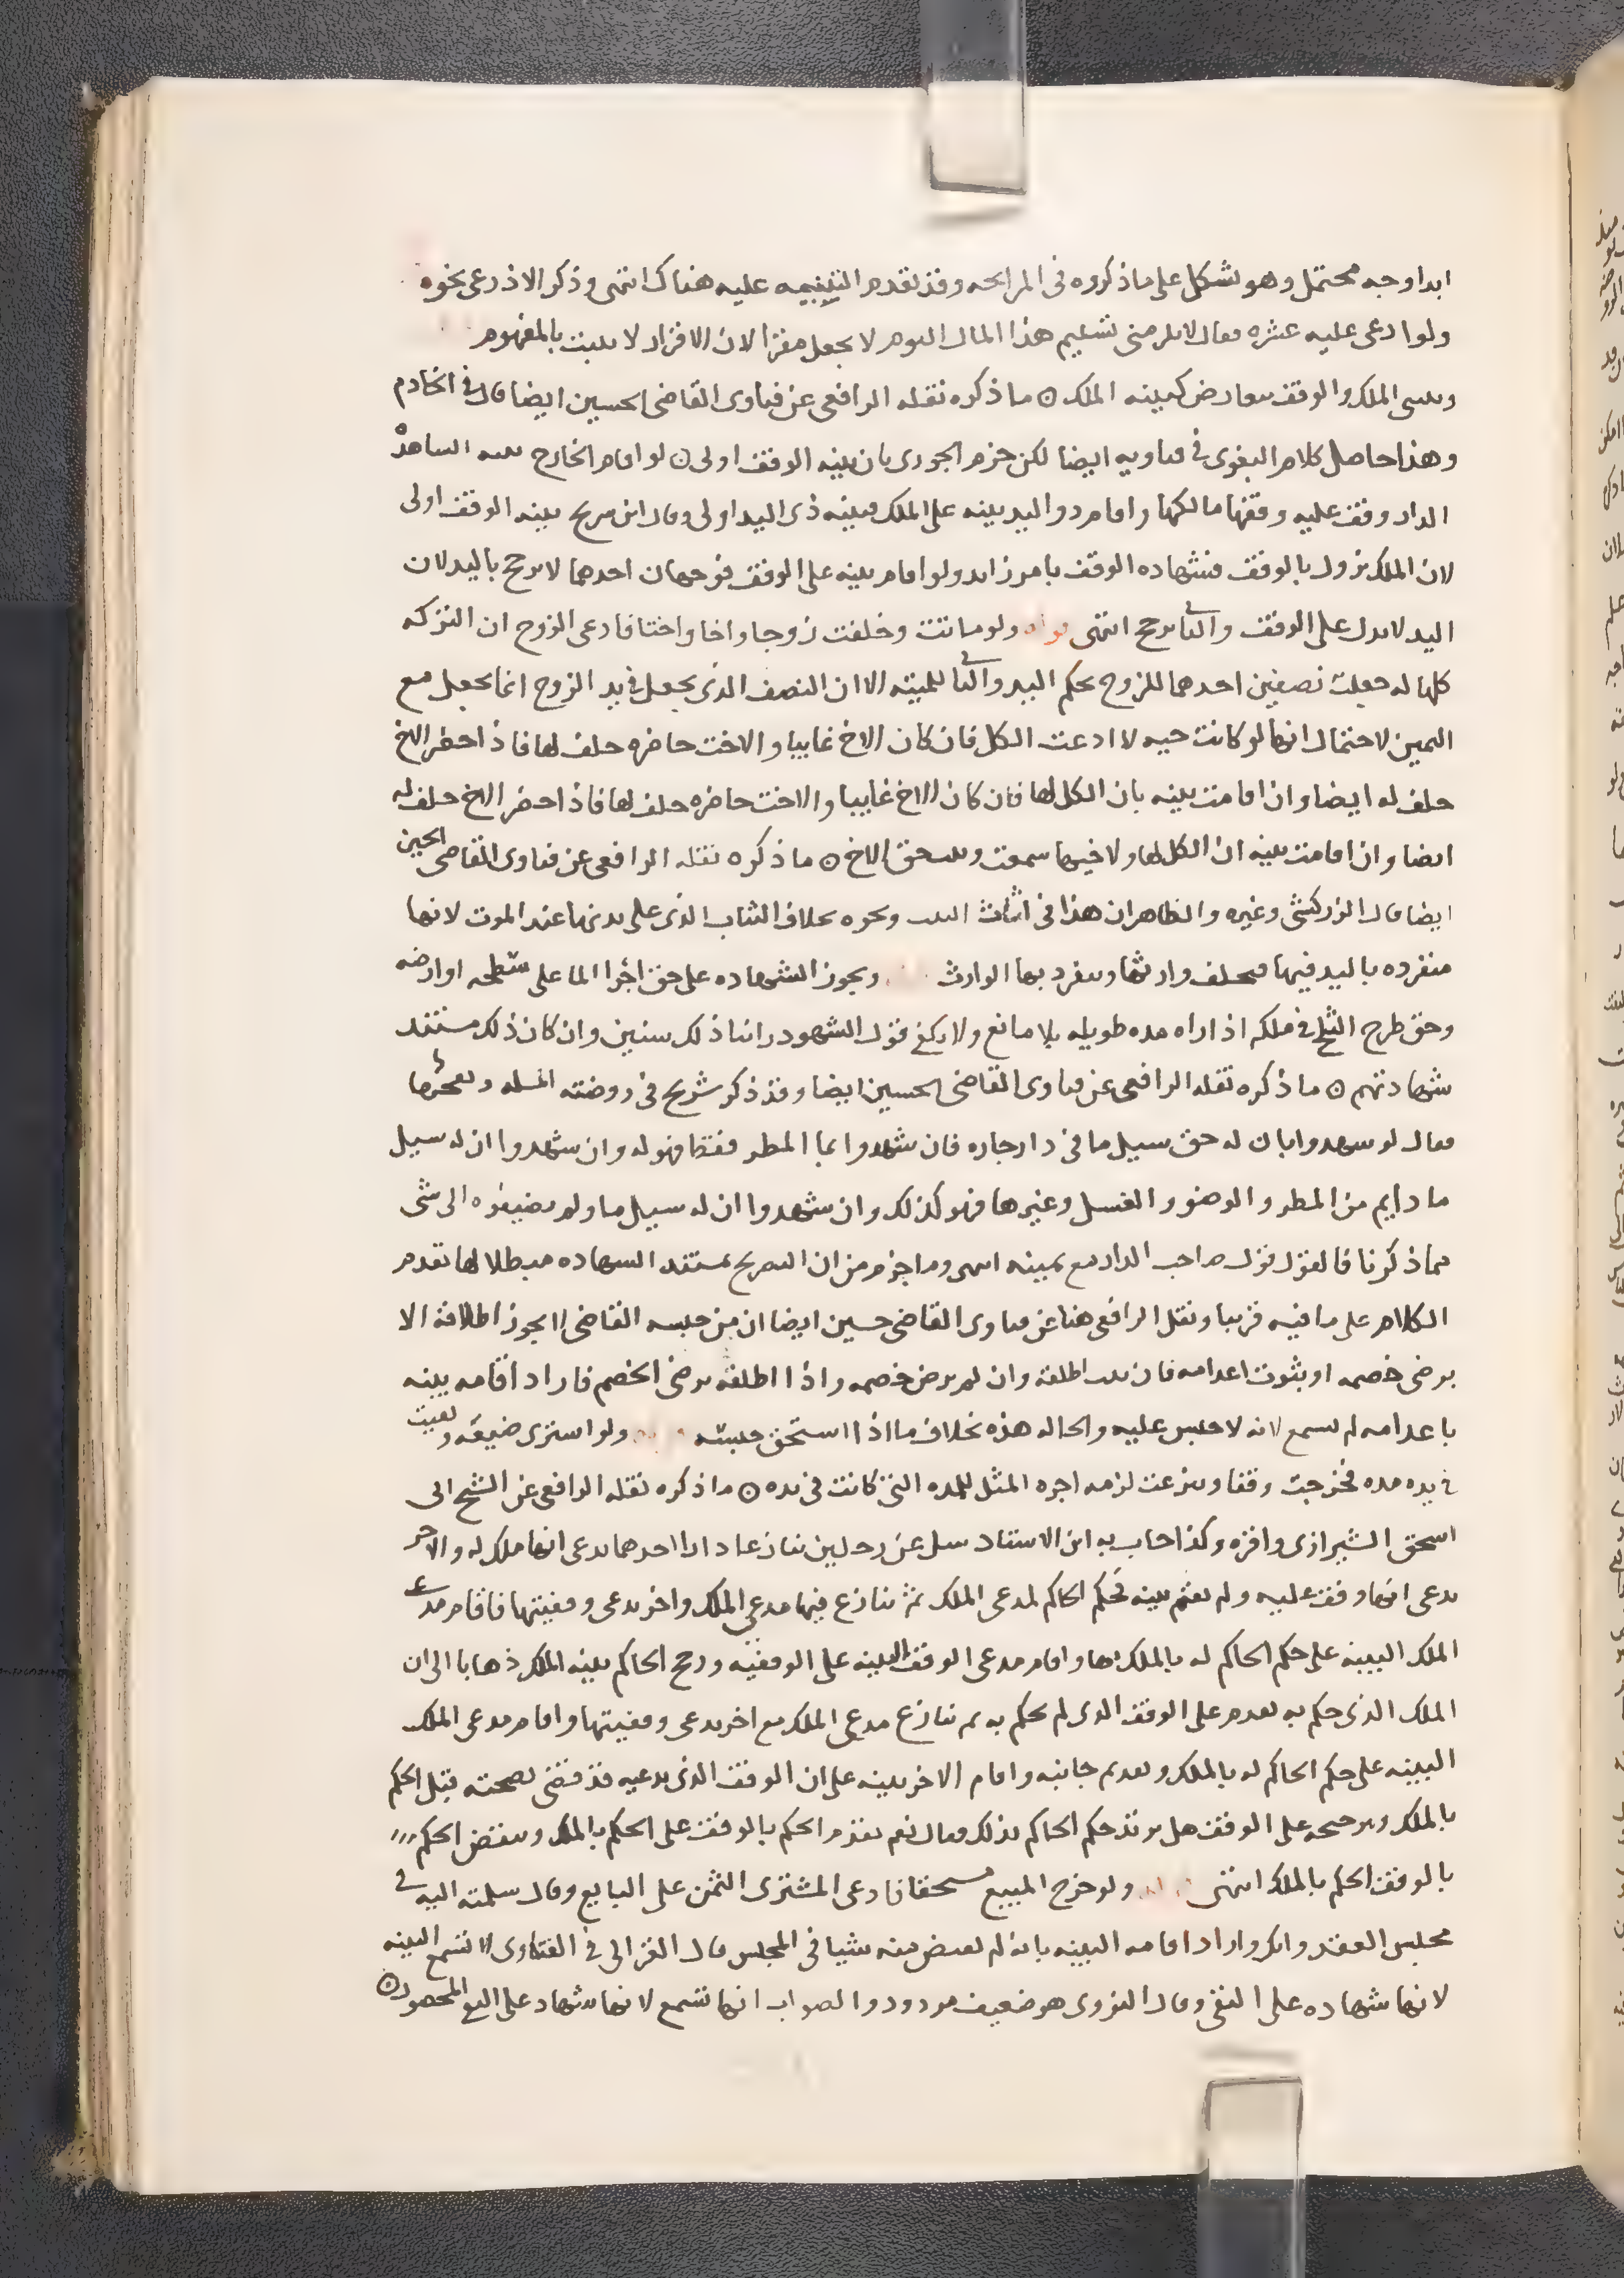 ابدا وجه محتمل وهو يشكل على ما ذكروه في المرابحه وقد تقدم التنبيه عليه هناك انتهى وذكر الاذرعي نحوه
ولو ادعى عليه عشره فقال لا يلزمني تسليم هذا المال اليوم لا يجعل مقرا لان الاقرار لا يثبت بالمفهوم
وبينتي الملك والوقف تتعارض كبينه الملك ما ذكره نقله الرافعي عن فتاوى القاضي الحسين ايضا قال في الخادم
وهذا حاصل كلام البغوي في فتاويه ايضا لكن جزم الجوري بان بينه الوقف اولى لو اقام الخارج بينه
الدار وقف عليه وقفها مالكها واقام ذو اليد بينه على الملك فبينه ذي اليد اولى وقال ابن سريج بينه الوقف اولى
لان الملك يزول بالوقف فشهاده الوقف بامر زايد ولو اقام بينه على الوقف فوجهان احدهما لا يرجح باليد لان
اليد لا تدل على الوقف والثاني يرجح انتهى ولو ماتت وخلفت زوجا واخا واختا فادعى الزوج ان التركه
كلها له جعلت نصفين احدهما للزوج بحكم اليد والثاني للميته الا ان النصف الذي يجعل في يد الزوج انما يجعل مع
اليمين لاحتمال انها لو كانت حيه لادعت الكل فان كان الاخ غايبا والاخت حاضره حلف لها فاذا حضر الاخ
حلف له ايضا وان اقامت بينه بان الكل لها فان كان الاخ غايبا والاخت حاضره حلف لها فاذا حضر الاخ حلف له
ايضا وان اقامت بينه ان الكل لها ولاخيها سمعت ويستحق الاخ ما ذكره نقله الرافعي عن فتاوى القاضي الحسين
ايضا قال الزركشي وغيره والظاهر ان هذا في اثاث البيت ونحوه بخلاف الثياب الذي على بدنها عند الموت لانها
منفرده باليد فيها فيحلف وارثها وينفرد بها الوارث ويجوز الشهاده على حق اجرا الما على سطحه او ارضه
وحق طرح الثلج في ملكه اذا راه مده طويله بلا مانع ولا يكفي قول الشهود راينا ذلك سنين وان كان ذلك مستند
شهادتهم ما ذكره نقله الرافعي عن فتاوى القاضي الحسين ايضا وقد ذكر شريح في روضته المسله
فقال لو شهدوا بان له حق سيل ما في دار جاره فان شهدوا بما المطر فقط فهو له وان شهدوا ان له سيل
ما دايم من المطر والوضو والغسل وغيرها فهو كذلك وان شهدوا ان له سيل ما ولم يضيفوه الى شي
مما ذكرنا فالقول قول صاحب الدار مع يمينه انتهى وما جزم من ان التصريح بمستند الشهاده مبطلا لها تقدم
الكلام على ما فيه قريبا ونقل الرافعي هنا عن فتاوى القاضي حسين ايضا ان من حبسه القاضي لا يجوز اطلاقه الا
برضى خصمه او بثبوت اعدامه فان ثبت اطلقه وان لم يرض خصمه واذا اطلقه برضى الخصم فاراد اقامه بينه
باعدامه لم تسمع لانه لا حبس عليه والحاله هذه بخلاف ما اذا استحق حبسه ولو اشترى ضيعه وبقيت
في يده مده فخرجت وقفا وانتزعت لزمه اجره المثل للمده التي كانت في يده ما ذكره نقله الرافعي عن الشيخ ابي
اسحق الشيرازي واقره وكذا اجاب به ابن الاستاد سيل عن رجلين تنازعا دارا احدهما يدعي انها ملك له والاخر
يدعي انها وقف عليه ولم تقم بينه فحكم الحاكم لمدعي الملك ثم تنازع فيها مدعي الملك واخر يدعي وقفيتها فاقام مدعي
الملك البينه على حكم الحاكم له بالملك بها واقام مدعي الوقف البينه على الوقفيه ورجح الحاكم بينه الملك ذهابا الى ان
الملك الذي حكم به تقدم على الوقف الذي لم يحكم به ثم تنازع مدعي الملك مع اخر يدعي وقفيتها واقام مدعي الملك
البينه على حكم الحاكم له بالملك وتقديم جانبه واقام الاخر بينه على ان الوقف الذي يدعيه قد قضى بصحته قبل الحكم
بالملك وترجيحه على الوقف هل حكم الحاكم بذلك فقال نعم يقدم الحكم بالوقف على الحكم بالملك وينقض الحكم
بالوقف الحكم بالملك انتهى ولو خرج المبيع مستحقا فادعى المشتري الثمن على البايع وقال سلمته اليه في
مجلس العقد وانكر واراد اقامه البينه بانه لم يقبض منه شيا في المجلس قال الغزالي في الفتاوى لا تسمع البينه
لانها شهاده على النفي وقال النووي هو ضعيف مردود والصواب انها تسمع لانها شهاد على النفي المحصور